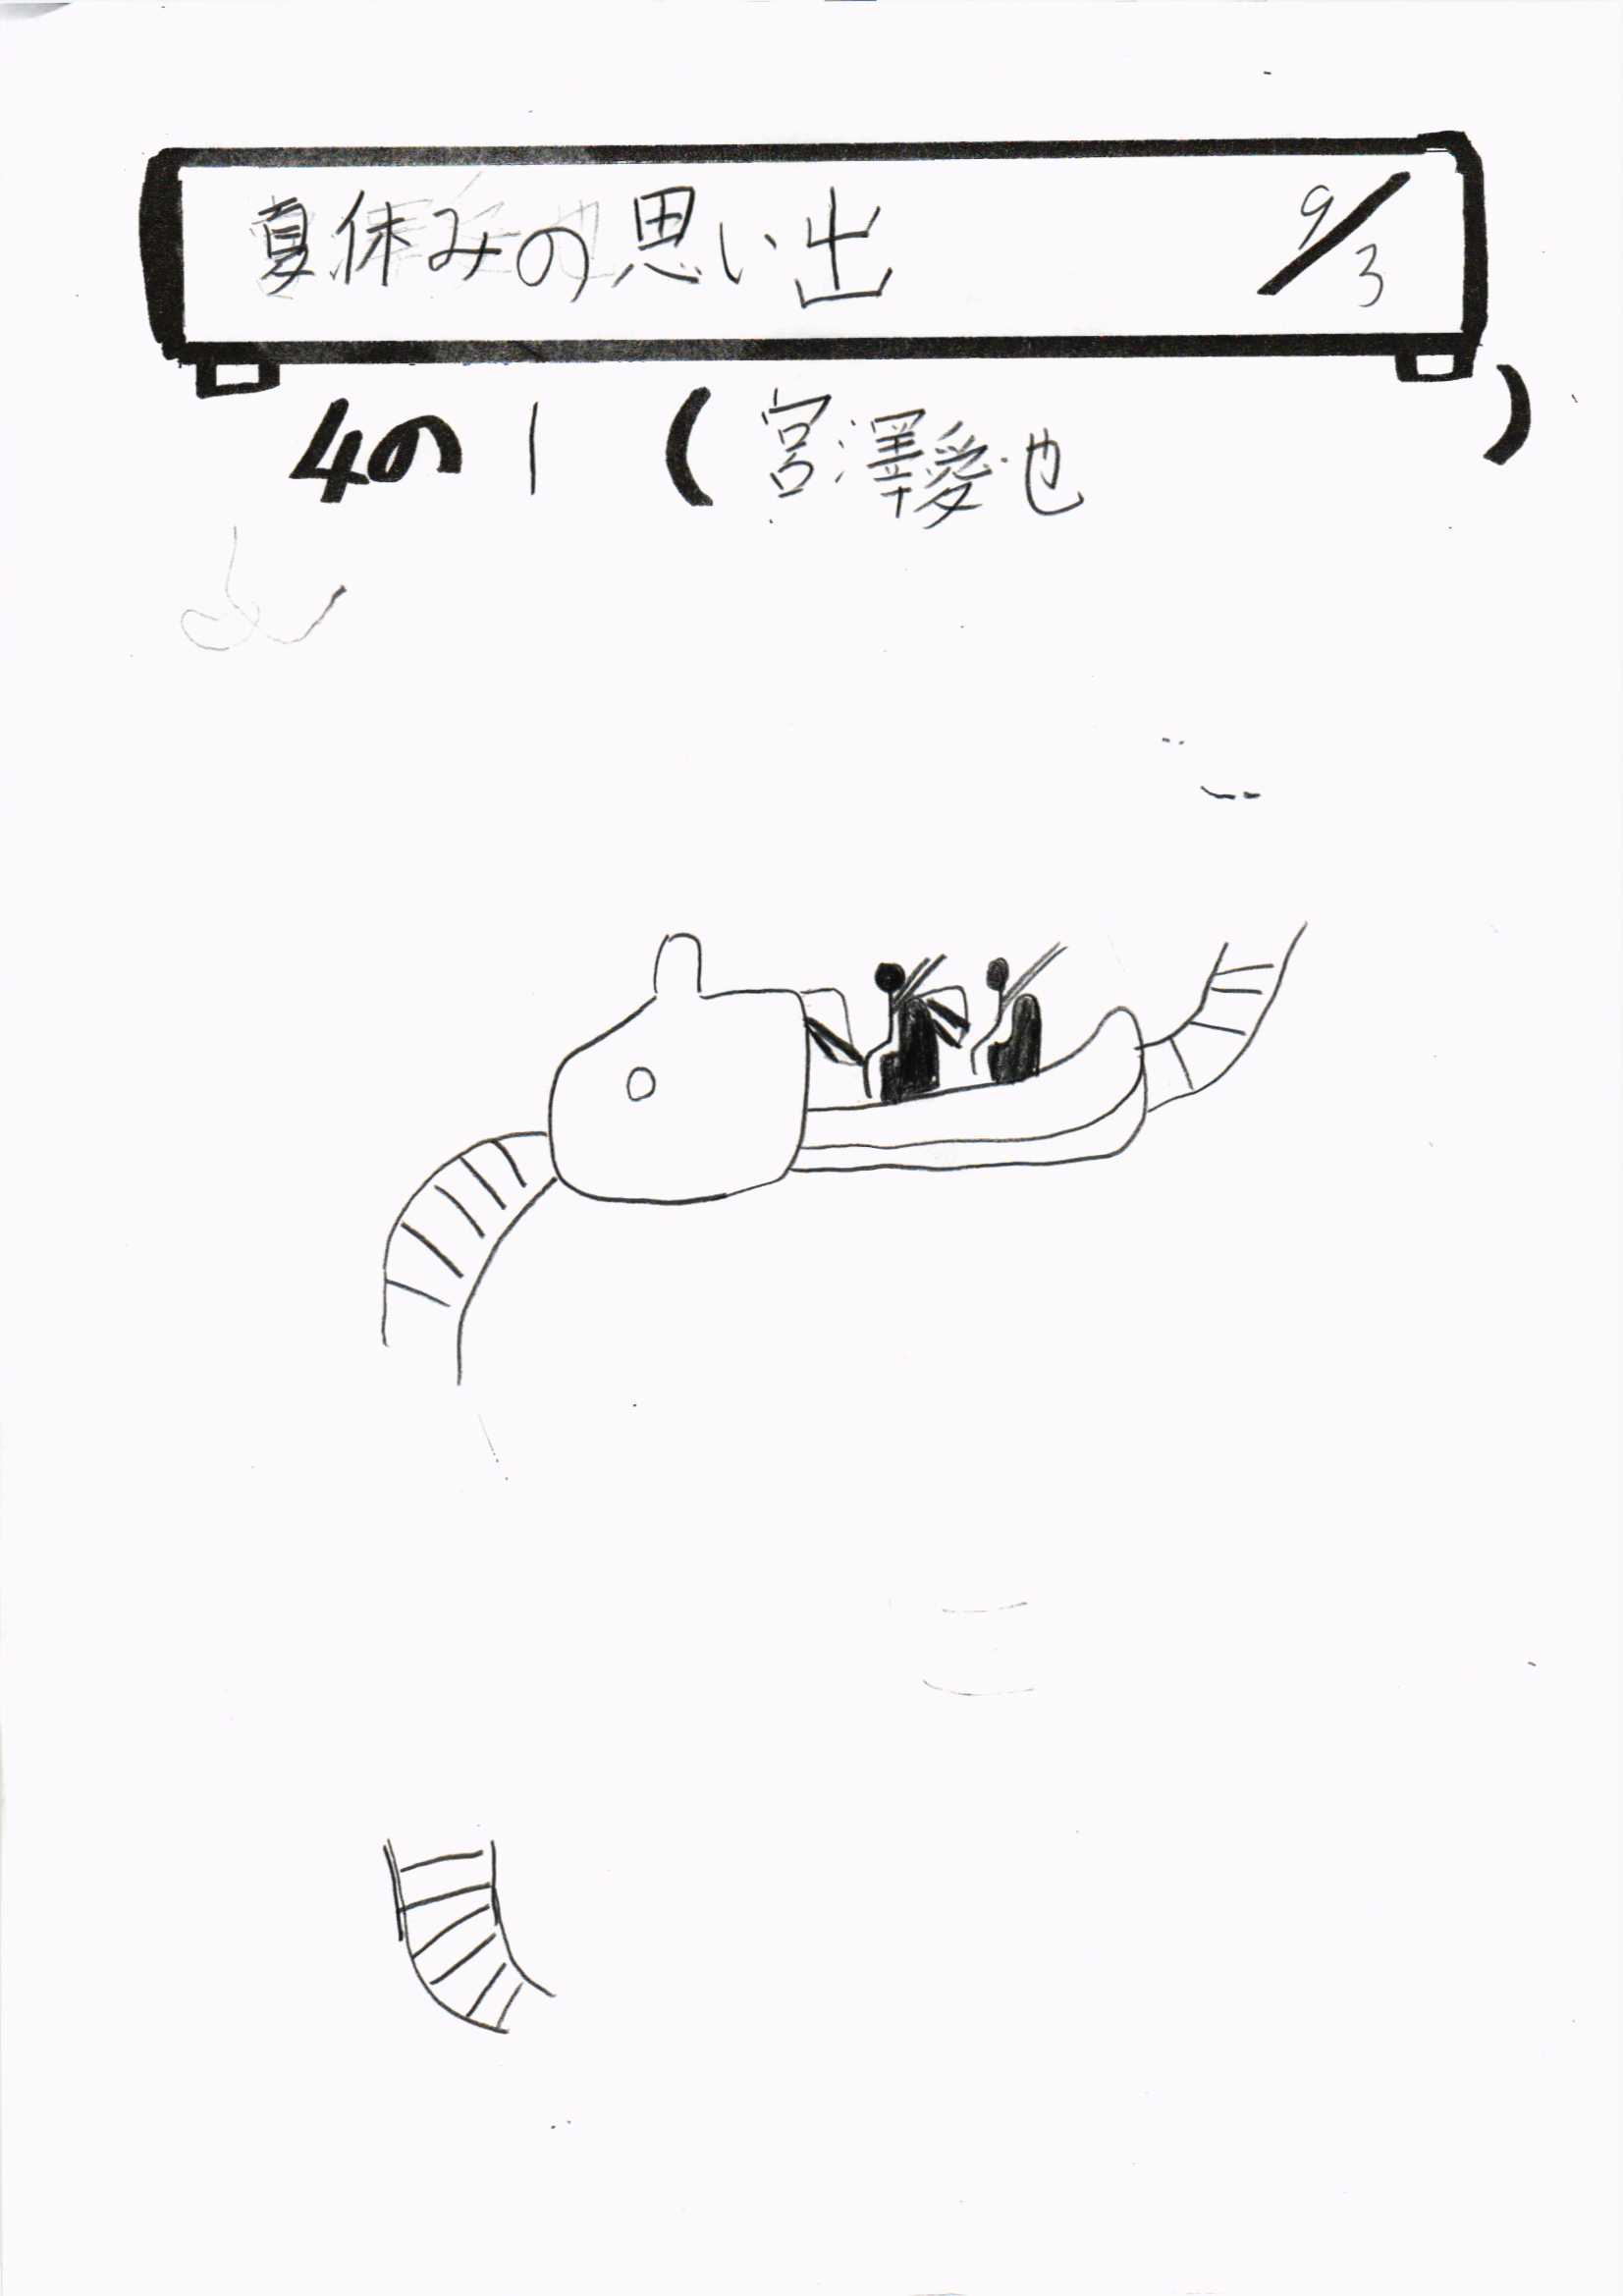 夏休みの思い出 9/3
4の1(宮澤愛也)